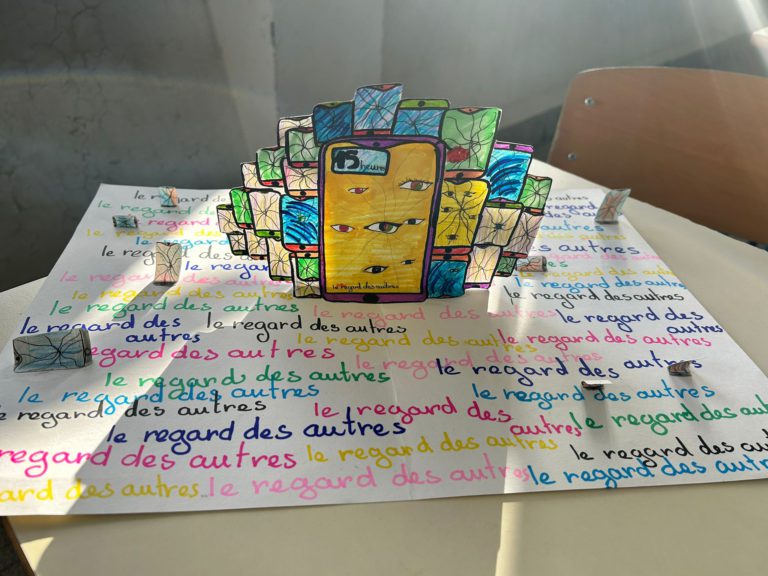 15
heures
le regard des autres
le regard
le regard des
autres
le regard des
autres
le regard
autres
le
le regard des autres
le regard
autres
le regard
le regard des autres
le regard des autres
le regard des autres
le regard des autres
le regard des
autres
le regard des
autres
le regard des autres
le regard des autres
le regard des autres
regard des autres
le regard des autres
le regard des autres
le regard des autres
le regard des autres
le regard des autres
le regard des autres
le regard des
autres
le regard des
le regard des autres
regard des autres
le regard des autres
le regard des
des autres..
le regard des autres
le regard des